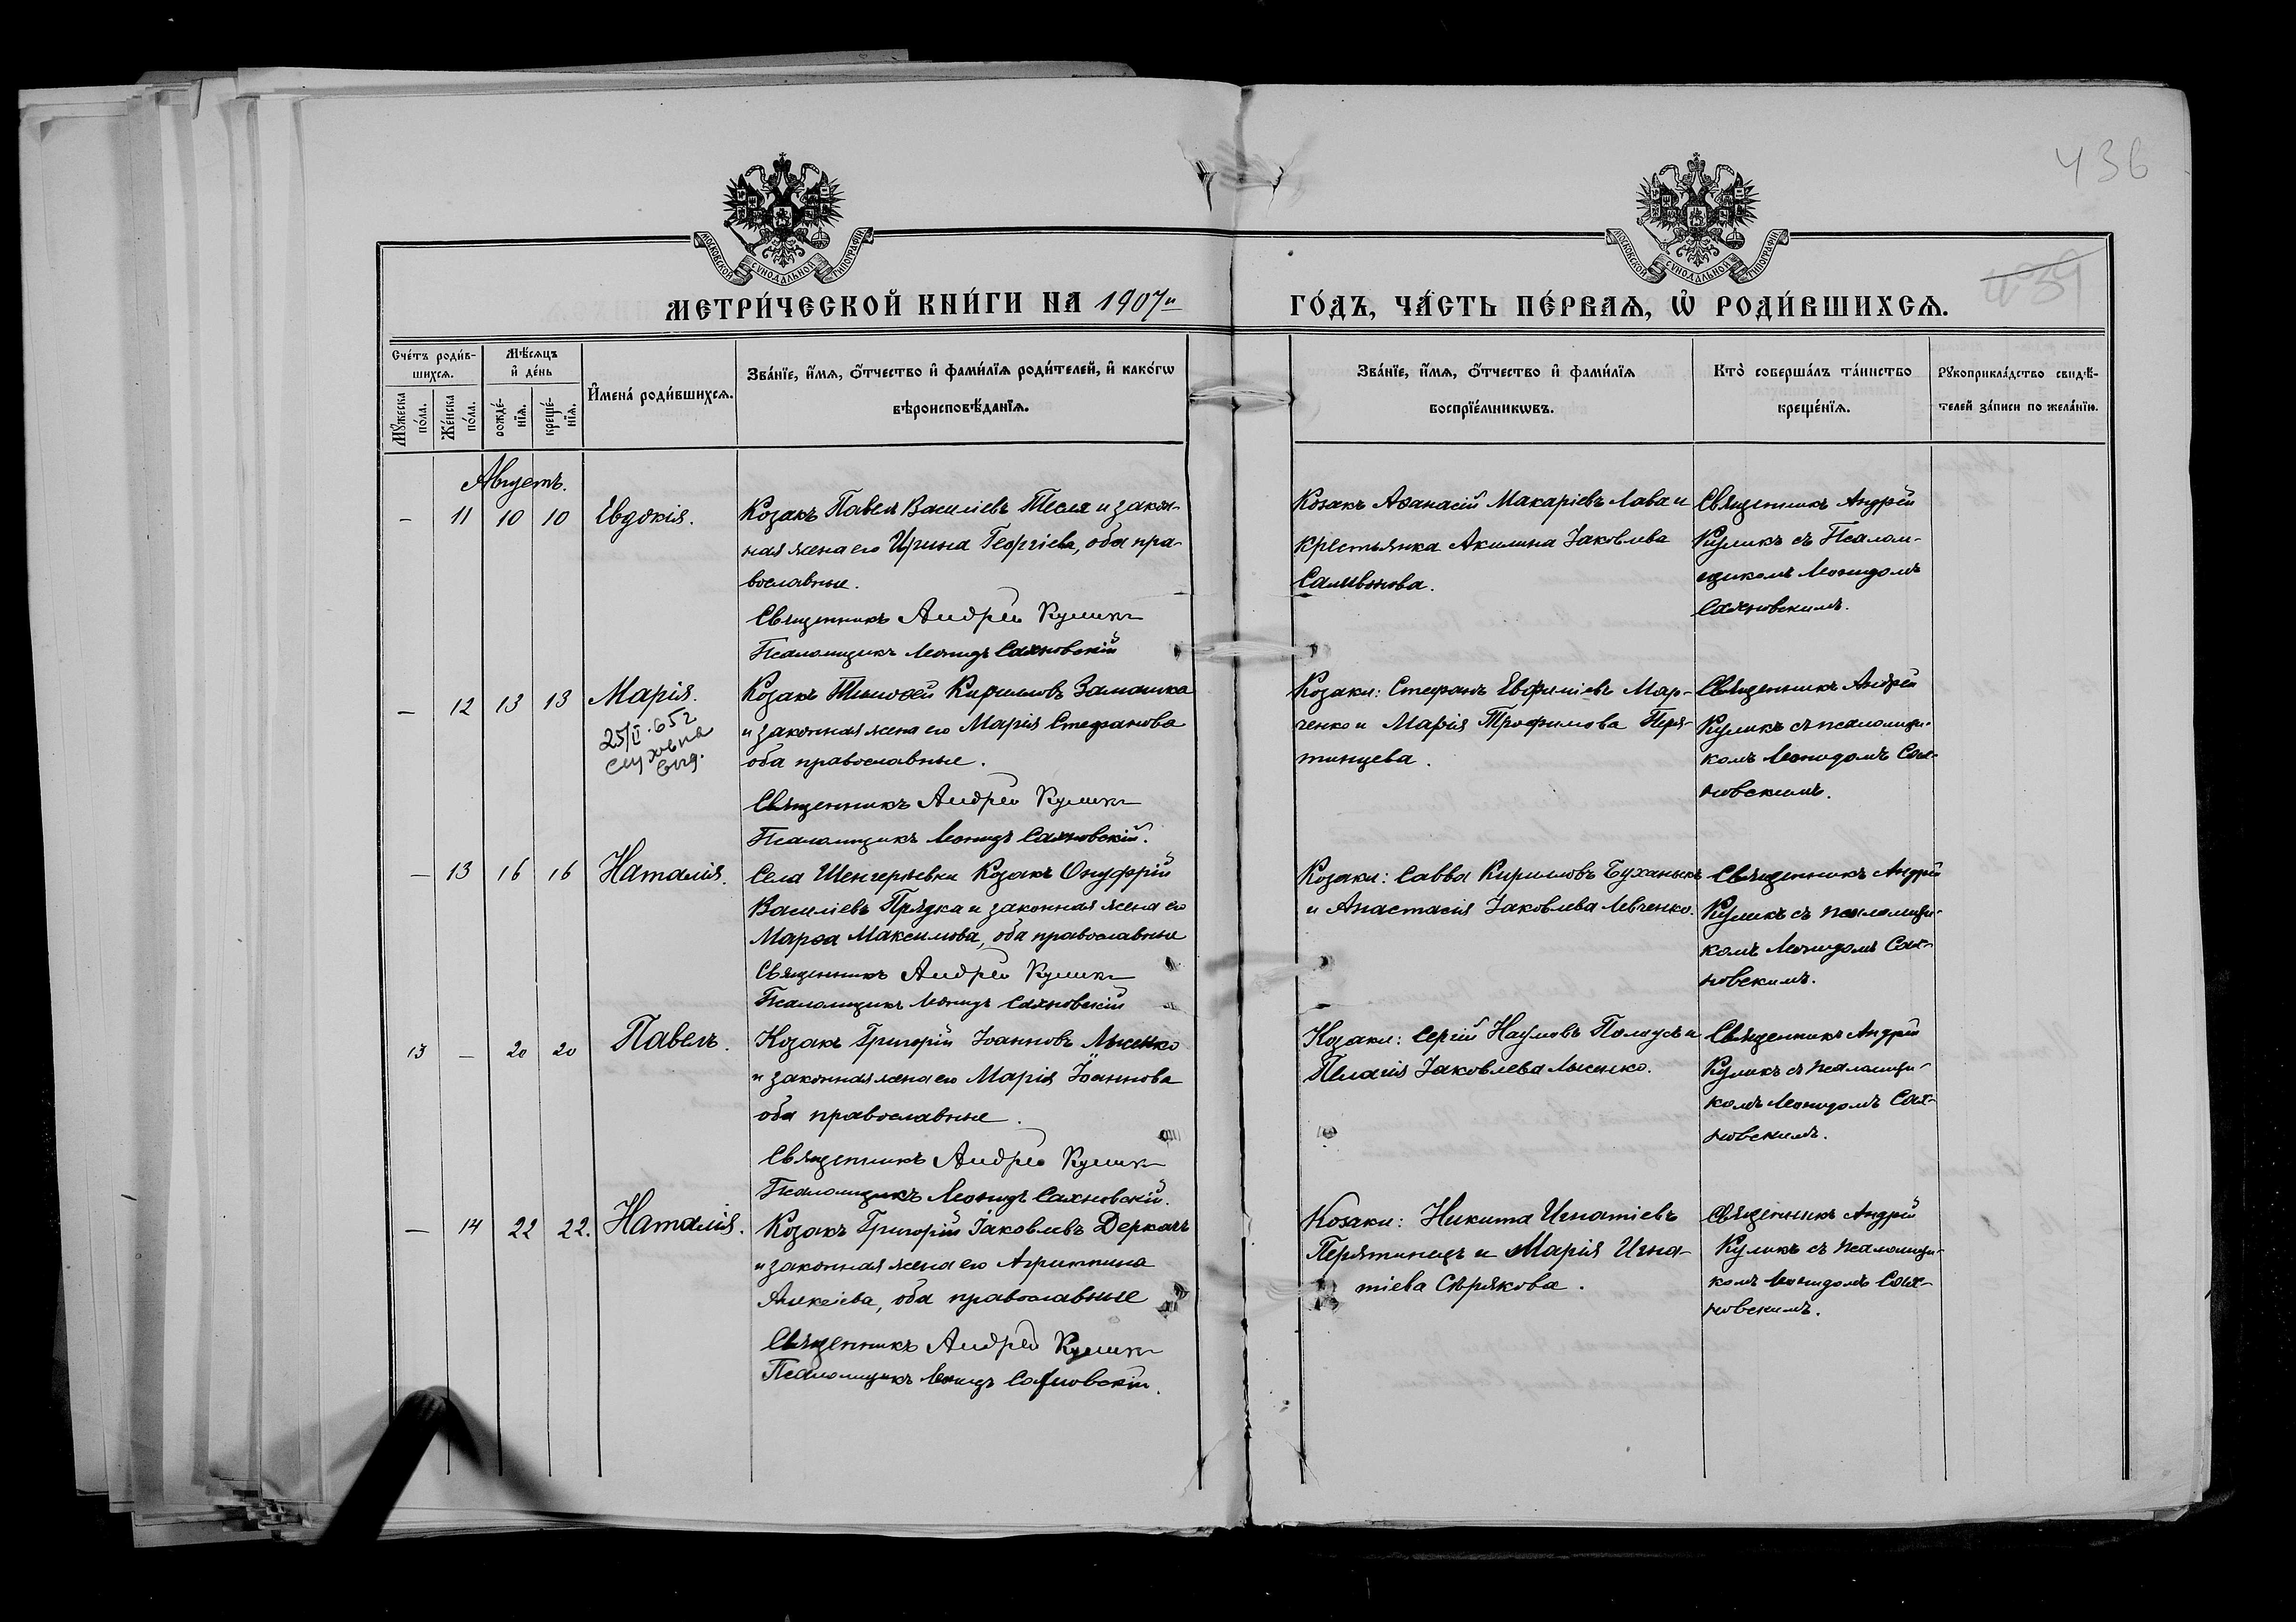 436
439
МОСКОВСКОЙ СѴНОДАЛЬНОЙ ТИПОГРАФІИ
МОСКОВСКОЙ СѴНОДАЛЬНОЙ ТИПОГРАФІИ
МЕТРИ́ЧЕСКОЙ КНИ́ГИ НА 1907й ГО́ДЪ, ЧА́СТЬ ПЕ́РВАѦ, Ѡ РОДИ́ВШИХСѦ.
Сче́тъ роди́в-
шихсѧ.
Мꙋ́жеска по́ла.
Же́нска по́ла.
Мѣ́сѧцъ
и де́нь
рожде́-
нїѧ.
креще́-
нїѧ.
Имена̀ роди́вшихсѧ.
Зва́нїе, и́мѧ, о́тчество и фами́лїѧ роди́телей, и како́гѡ
вѣроисповѣ́данїѧ.
Зва́нїе, и́мѧ, о́тчество и фами́лїѧ
воспрїе́мникѡвъ.
Кто̀ соверша́лъ та́инство
креще́нїѧ.
Рꙋкоприкла́дство свидѣ́-
телей за́писи по жела́нїю.
Августъ.
— 11 10 10 Евдокія.
Козакъ Павелъ Василіевъ Тесля и закон-
ная жена его Ирина Георгіева, оба пра-
вославные.
Священникъ Андрей Куликъ
Псаломщикъ Леонидъ Сахновскій
Козакъ Аѳанасій Макаріевъ Лава и
крестьянка Акилина Іаковлева
Священникъ Андрей
Куликъ съ Псалом-
щикомъ Леонидомъ
Сахновскимъ.
— 12 13 13 Марія.
25/II.65г
выд.
Козакъ Тимоѳей Кирилловъ Замашка
и законная жена его Марія Стефанова
оба православные.
Священникъ Андрей Куликъ
Псаломщикъ Леонидъ Сахновскій.
Козаки: Стефанъ Евфиміевъ Мар-
ченко и Марія Трофимова Перя-
тинцева.
Священникъ Андрей
Куликъ съ псаломщи-
комъ Леонидомъ Сах-
новскимъ.
— 13 16 16 Наталія.
Села Шенгерѣевки Козакъ Онуфрій
Василіевъ Прядка и законная жена его
Марѳа Максимова, оба православные
Священникъ Андрей Куликъ
Псаломщикъ Леонидъ Сахновскій
Козаки: Савва Кирилловъ Буханыкъ
и Анастасія Іаковлева Левченко.
Священникъ Андрей
Куликъ съ псаломщи-
комъ Леонидомъ Сах-
новскимъ.
13 — 20 20 Павелъ.
Козакъ Григорій Іоанновъ Лысенко
и законная жена его Марія Іоаннова
оба православные.
Священникъ Андрей Куликъ
Псаломщикъ Леонидъ Сахновскій.
Козаки: Сергій Наумовъ Полоусъ и
Пелагія Іаковлева Лысенко.
Священникъ Андрей
Куликъ съ псаломщи-
комъ Леонидомъ Сах-
новскимъ.
— 14 22 22. Наталія.
Козакъ Григорій Іаковлевъ Деркачъ
и законная жена его Агриппина
Алексіева, оба православные
Священникъ Андрей Куликъ
Псаломщикъ Леонидъ Сахновскій.
Козаки: Никита Игнатіевъ
Перятинецъ и Марія Игна-
тіева Сѣрякова.
Священникъ Андрей
Куликъ съ псаломщи-
комъ Леонидомъ Сах-
новскимъ.